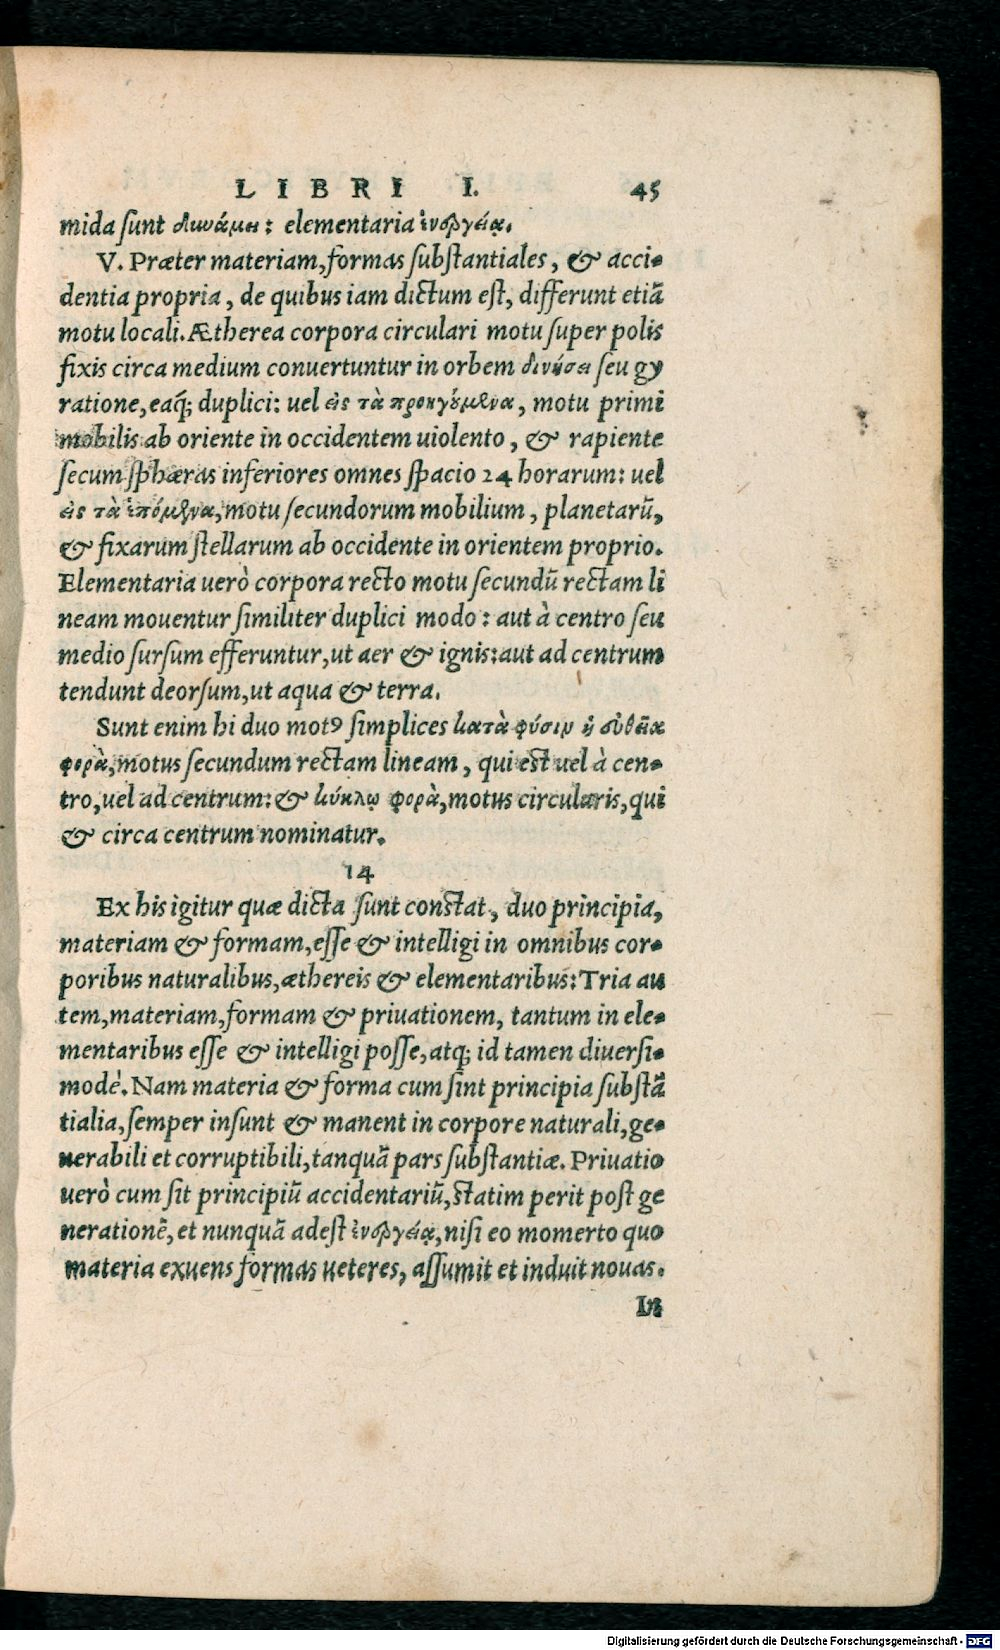 LIBRI I. 45
mida sunt δυνάμει: elementaria ἐνεργείᾳ.
V. Præter materiam, formas substantiales, & acci-
dentia propria, de quibus iam dictum est, differunt etiã
motu locali. Ætherea corpora circulari motu super polis
fixis circa medium conuertuntur in orbem δινήσει seu gy
ratione, eaq; duplici: uel εἰς τὰ προηγούμενα, motu primi
mobilis ab oriente in occidentem uiolento, & rapiente
secum sphæras inferiores omnes spacio 24 horarum: uel
εἰς τὰ ἑπόμενα, motu secundorum mobilium, planetarũ,
& fixarum stellarum ab occidente in orientem proprio.
Elementaria uerò corpora recto motu secundũ rectam li
neam mouentur similiter duplici modo: aut à centro seu
medio sursum efferuntur, ut aer & ignis: aut ad centrum
tendunt deorsum, ut aqua & terra.
Sunt enim hi duo motꝰ simplices κατὰ φύσιν ἡ εὐθεῖα
φορὰ, motus secundum rectam lineam, qui est uel à cen-
tro, uel ad centrum: & κύκλῳ φορὰ, motus circularis, qui
& circa centrum nominatur.
14
Ex his igitur quæ dicta sunt constat, duo principia,
materiam & formam, esse & intelligi in omnibus cor-
poribus naturalibus, æthereis & elementaribus: Tria au
tem, materiam, formam & priuationem, tantum in ele-
mentaribus esse & intelligi posse, atq; id tamen diuersi-
modè. Nam materia & forma cum sint principia substã
tialia, semper insunt & manent in corpore naturali, ge-
nerabili et corruptibili, tanquã pars substantiæ. Priuatio
uerò cum sit principiũ accidentariũ, statim perit post ge
nerationẽ, et nunquã adest ἐνεργείᾳ, nisi eo momerto quo
materia exuens formas ueteres, assumit et induit nouas.
In
Digitalisierung gefördert durch die Deutsche Forschungsgemeinschaft - DFG